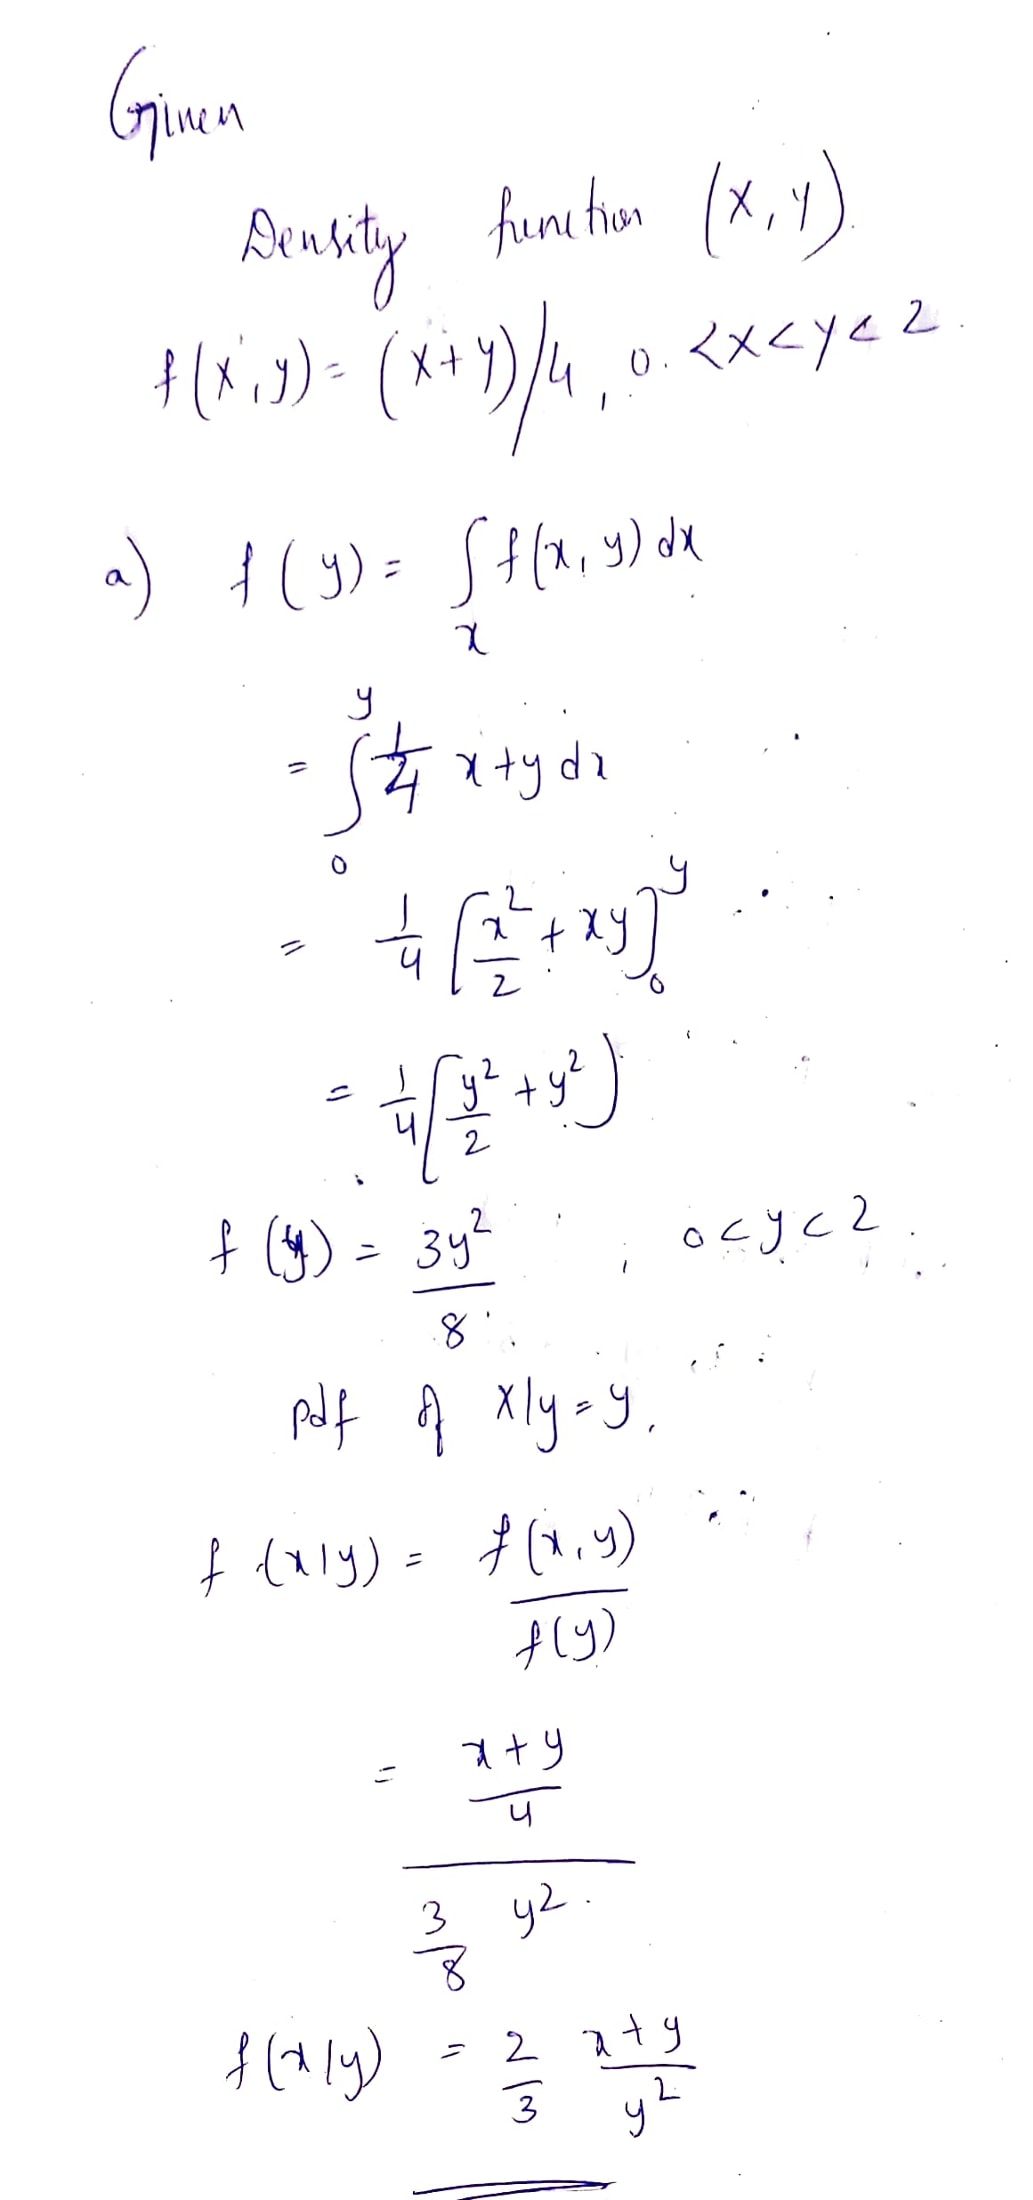 Given
Density function (X, Y).
f(x, y) = (x+y)/4, 0. <x<y<2.
a) f(y) = ∫_x f(x, y) dx
= ∫_0^y 1/4 x+y dx
= 1/4 [x²/2 + xy]_0^y
= 1/4 [y²/2 + y²)
f(y) = 3y²/8 , 0<y<2
pdf of x|y=y.
f(x|y) = f(x, y)/f(y)
= (x+y)/4 / 3/8 y².
f(x|y) = 2/3 (x+y)/y²